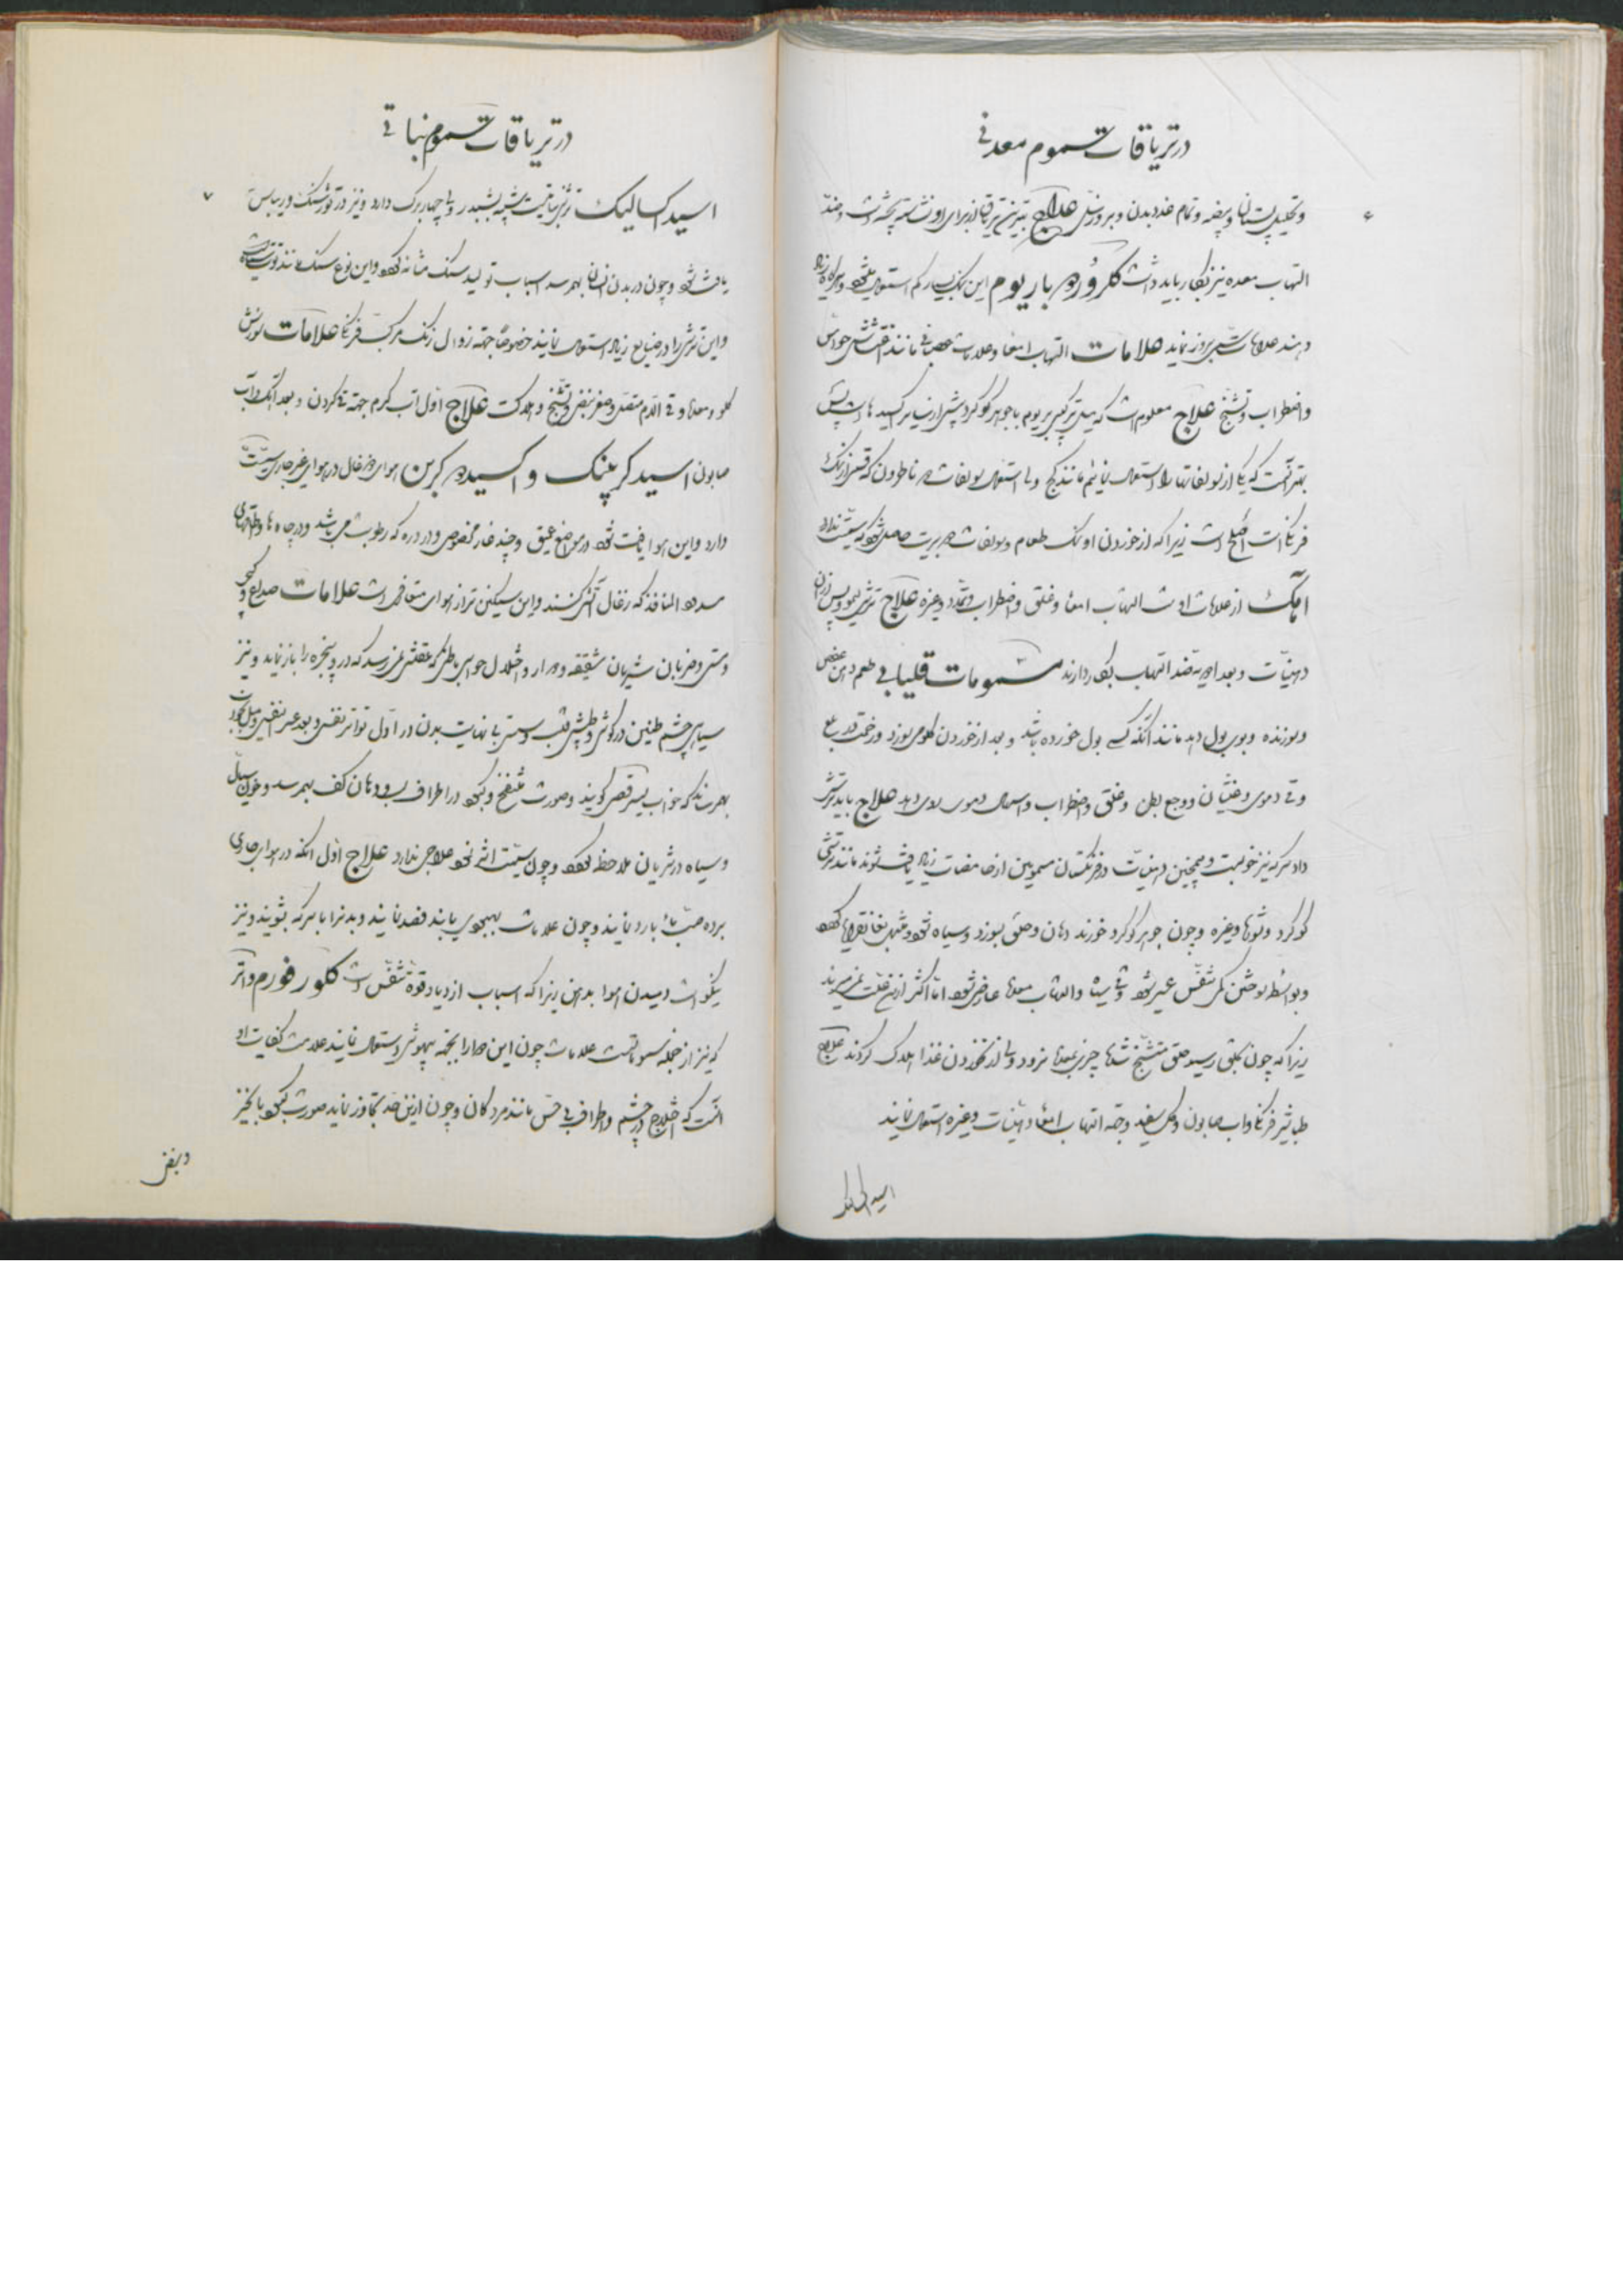 در تریاقات سموم معدنی
۶
و تحلیل پستان و بیضه و تمام غدد بدن و بروز سل علاج بهترین تریاق از برای او نشاسته پخته است و ضد
التهاب معده نیز بکار باید داشت کلرُوره باریوم این نمک بسیار کم استعمال میشود و هرگاه زیاد
دهند علامات سمی بروز نماید علامات التهاب امعا و علامات عصبانی مانند اغتشاش حواس
و اضطراب و تشنج علاج معلوم است که میل ترکیبی باریوم با جوهر گوگرد بیش از سایر اکسیدها است پس
بهتر آنست که یکی از سولفاتها را استعمال نمائیم مانند گچ ولی استعمال سولفات ناطرون که قسمی از نمک
فرنگی است اصلح است زیرا که از خوردن او نمک طعام و سولفات بریت حاصل شود که سمیت ندارد
آهک از علامات اوست التهاب امعا و قلق و اضطراب و تمدد و غیره علاج ترشی لیمو و پس از آن
دهنیات و بعد ادویه ضد التهاب بکار دارند سمومات قلیایی طعم دهن عفص
و سوزنده و بوی بول دهد مانند آنکه کسی بول خورده باشد و بعد از خوردن گلو می سوزد و زحمت در بلع
و قی دموی و غثیان و وجع بطن و قلق و اضطراب و اسهال دموی روی دهد علاج باید ترشی
داد سرکه نیز خوبست و همچنین دهنیات در فرنگستان مسمومین از حامضات زیاد یافت شوند مانند ترشی
گوگرد و شوره و غیره و چون جوهر گوگرد خورند دهان و حلق بسوزد و سیاه شود و منتهی بغانقرایا گردد
و بواسطه سوختن مری تنفس عسیر شود و قی سیاه و التهاب معده عارض شود اما اکثر ازین علت نمی میرند
زیرا که چون بحلق رسید حلق متشنج شده چیزی بمعده نرود ولی از نخوردن غذا هلاک گردند علاج
طباشیر فرنگی و آب صابون و گل سفید و جهة التهاب امعا دهنیات و غیره استعمال نمایند
اسید اکسالیک
در تریاقات سموم نباتی
۷
اسید اکسالیک ترشی نباتیست شبیه بشبدر ولی چهار برگ دارد و نیز در ترشک و ریباس
یافت شود و چون در بدن انسان بهمرسد اسباب تولید سنگ مثانه گردد و این نوع سنگ مانند توت است
و این ترشی را در صنایع زیاد استعمال نمایند خصوصا جهة زوال رنگ مرکب فرنگی علامات سوزش
گلو و معده و قی الدم متصل و صغر نبض و تشنج و هلاکت علاج اول آب گرم جهة قی کردن و بعد آهک و آب
صابون اسید کربنیک و اکسیده کربن هوای زغال در هوای غیر جاری سمیت
دارد و این هوا یافت شود در مواضع عمیق و چند غار مخصوص و در دره که رطوبت می باشد و در چاه ها و اطاقهای
مسدود المنافذ که زغال آتش کنند و این سنگین تر از هوای متعارفی است علامات صداع و گیجی
و سستی و ضربان شریان شقیقه و دوار و اختلال حواس بطوری که عقلش نمی رسد که در و پنجره را باز نماید و نیز
سیاهی چشم طنین در گوش و طپش قلب و سستی بی نهایت بدن در اول تواتر تنفس و بعد عسر تنفس و میل بخواب
بهمرساند که خواب یسیر قصر گویند و صورت منتفخ و کبود در اطراف لب و دهان کف بهمرسد و خون سیال
و سیاه در شریان ملاحظه گردد و چون سمیت اثر نمود علاجی ندارد علاج اول آنکه در هوای جاری
برده صب ماء بارد نمایند و چون علامات بهبودی یابند فصد نمایند و بدن را با سرکه بشویند و نیز
نیکو است دمیدن هوا بدهن زیرا که اسباب ازدیاد قوة تنفس است کلور فورم و اتر
که نیز از جمله سموماتست علامات چون این دو را بجهة بیهوشی استعمال نمایند علامت کفایت او
آنست که اختلاج در چشم و اطراف بی حس مانند مردگان و چون ازین حد تجاوز نماید صورت کبود یا قرمز
و نبض